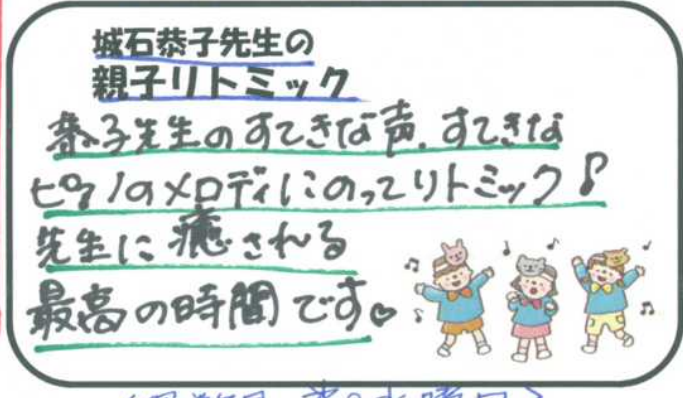 城石恭子先生の
親子リトミック
恭子先生のすてきな声、すてきな
ピアノのメロディにのってリトミック♪
先生に癒される
最高の時間です♡